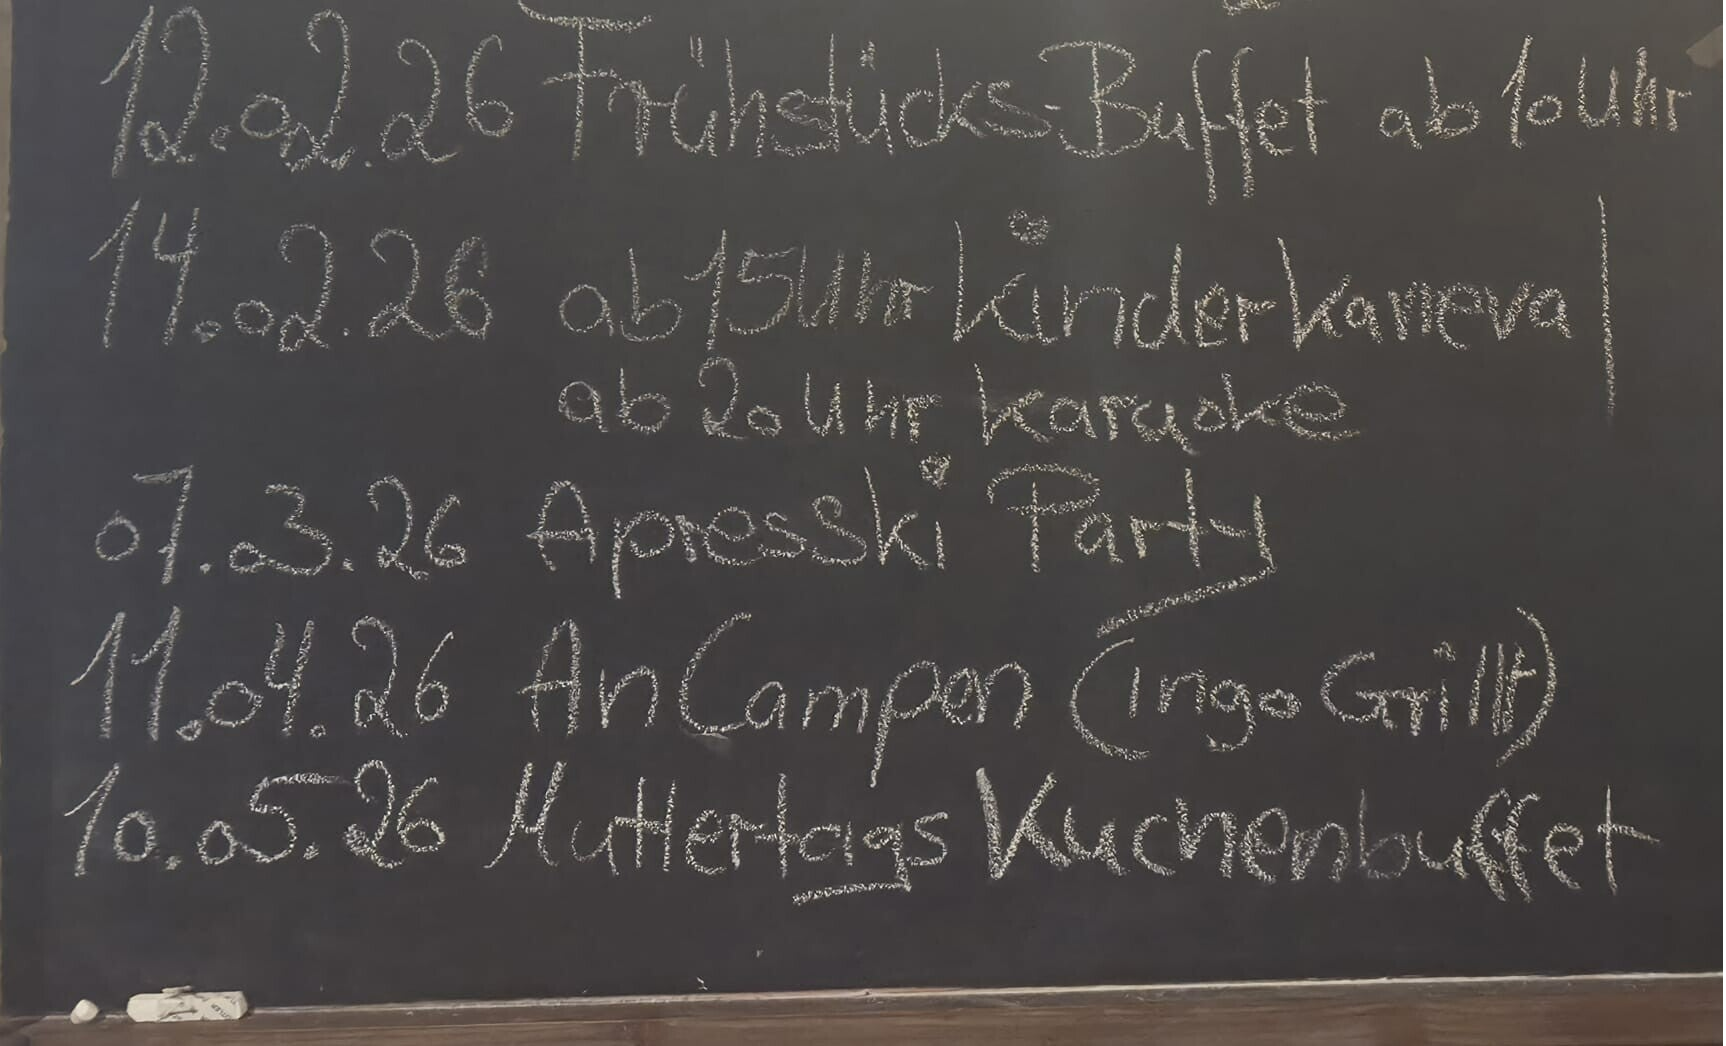 12.02.26 Frühstücks-Buffet ab 10 Uhr
14.02.26 ab 15 Uhr Kinderkarneval
ab 20 Uhr Karaoke
07.03.26 Apresski Party
11.04.26 An Campen (Ingo Grillt)
10.05.26 Muttertags Kuchenbuffet